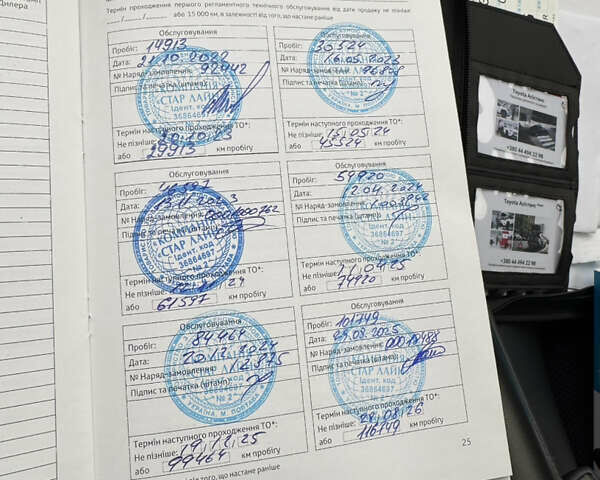 Дилера
Термін проходження першого регламентного технічного обслуговування від дати продажу не пізніше
__/__/____ або 15 000 км, в залежності від того, що настане раніше
Обслуговування
Пробіг: 14913
Дата: 21.10.2022
№ Наряд-замовлення: 92942
Підпис та печатка (штамп):
СТАР ЛАЙН
Ідент. код
36864697
Термін наступного проходження ТО*:
Не пізніше:
або 29913 км пробігу
Обслуговування
Пробіг: 30524
Дата: 16.05.2023
№ Наряд-замовлення: 96808
Підпис та печатка (штамп):
№ 2
Термін наступного проходження ТО*:
Не пізніше: 15.05.24
або 45524 км пробігу
Обслуговування
Пробіг: 46597
Дата:
№ Наряд-замовлення:
Підпис та печатка (штамп):
КОМПАНІЯ
СТАР ЛАЙН
Ідент. код
36864697
№ 2
Термін наступного проходження ТО*:
Не пізніше:
або 61597 км пробігу
Обслуговування
Пробіг: 59920
Дата: 12.04.2024
№ Наряд-замовлення:
Підпис та печатка (штамп):
СТАР ЛАЙН
Ідент. код
36864697
№ 2
Термін наступного проходження ТО*:
Не пізніше: 11.04.25
або 74920 км пробігу
Обслуговування
Пробіг: 84464
Дата: 20.12.2024
№ Наряд-замовлення: 12875
Підпис та печатка (штамп):
УКРАЇНА, М. ПОЛТАВА
Термін наступного проходження ТО*:
Не пізніше: 19.12.25
або 99464 км пробігу
Обслуговування
Пробіг: 101149
Дата: 29.08.2025
№ Наряд-замовлення:
Підпис та печатка (штамп):
СТАР ЛАЙН
Ідент. код
36864697
№ 2
Термін наступного проходження ТО*:
Не пізніше: 28.08.26
або 116149 км пробігу
25
від того, що настане раніше
Toyota Асістанс
+380 44 494 22 98
Toyota Асістанс
+380 44 494 22 98